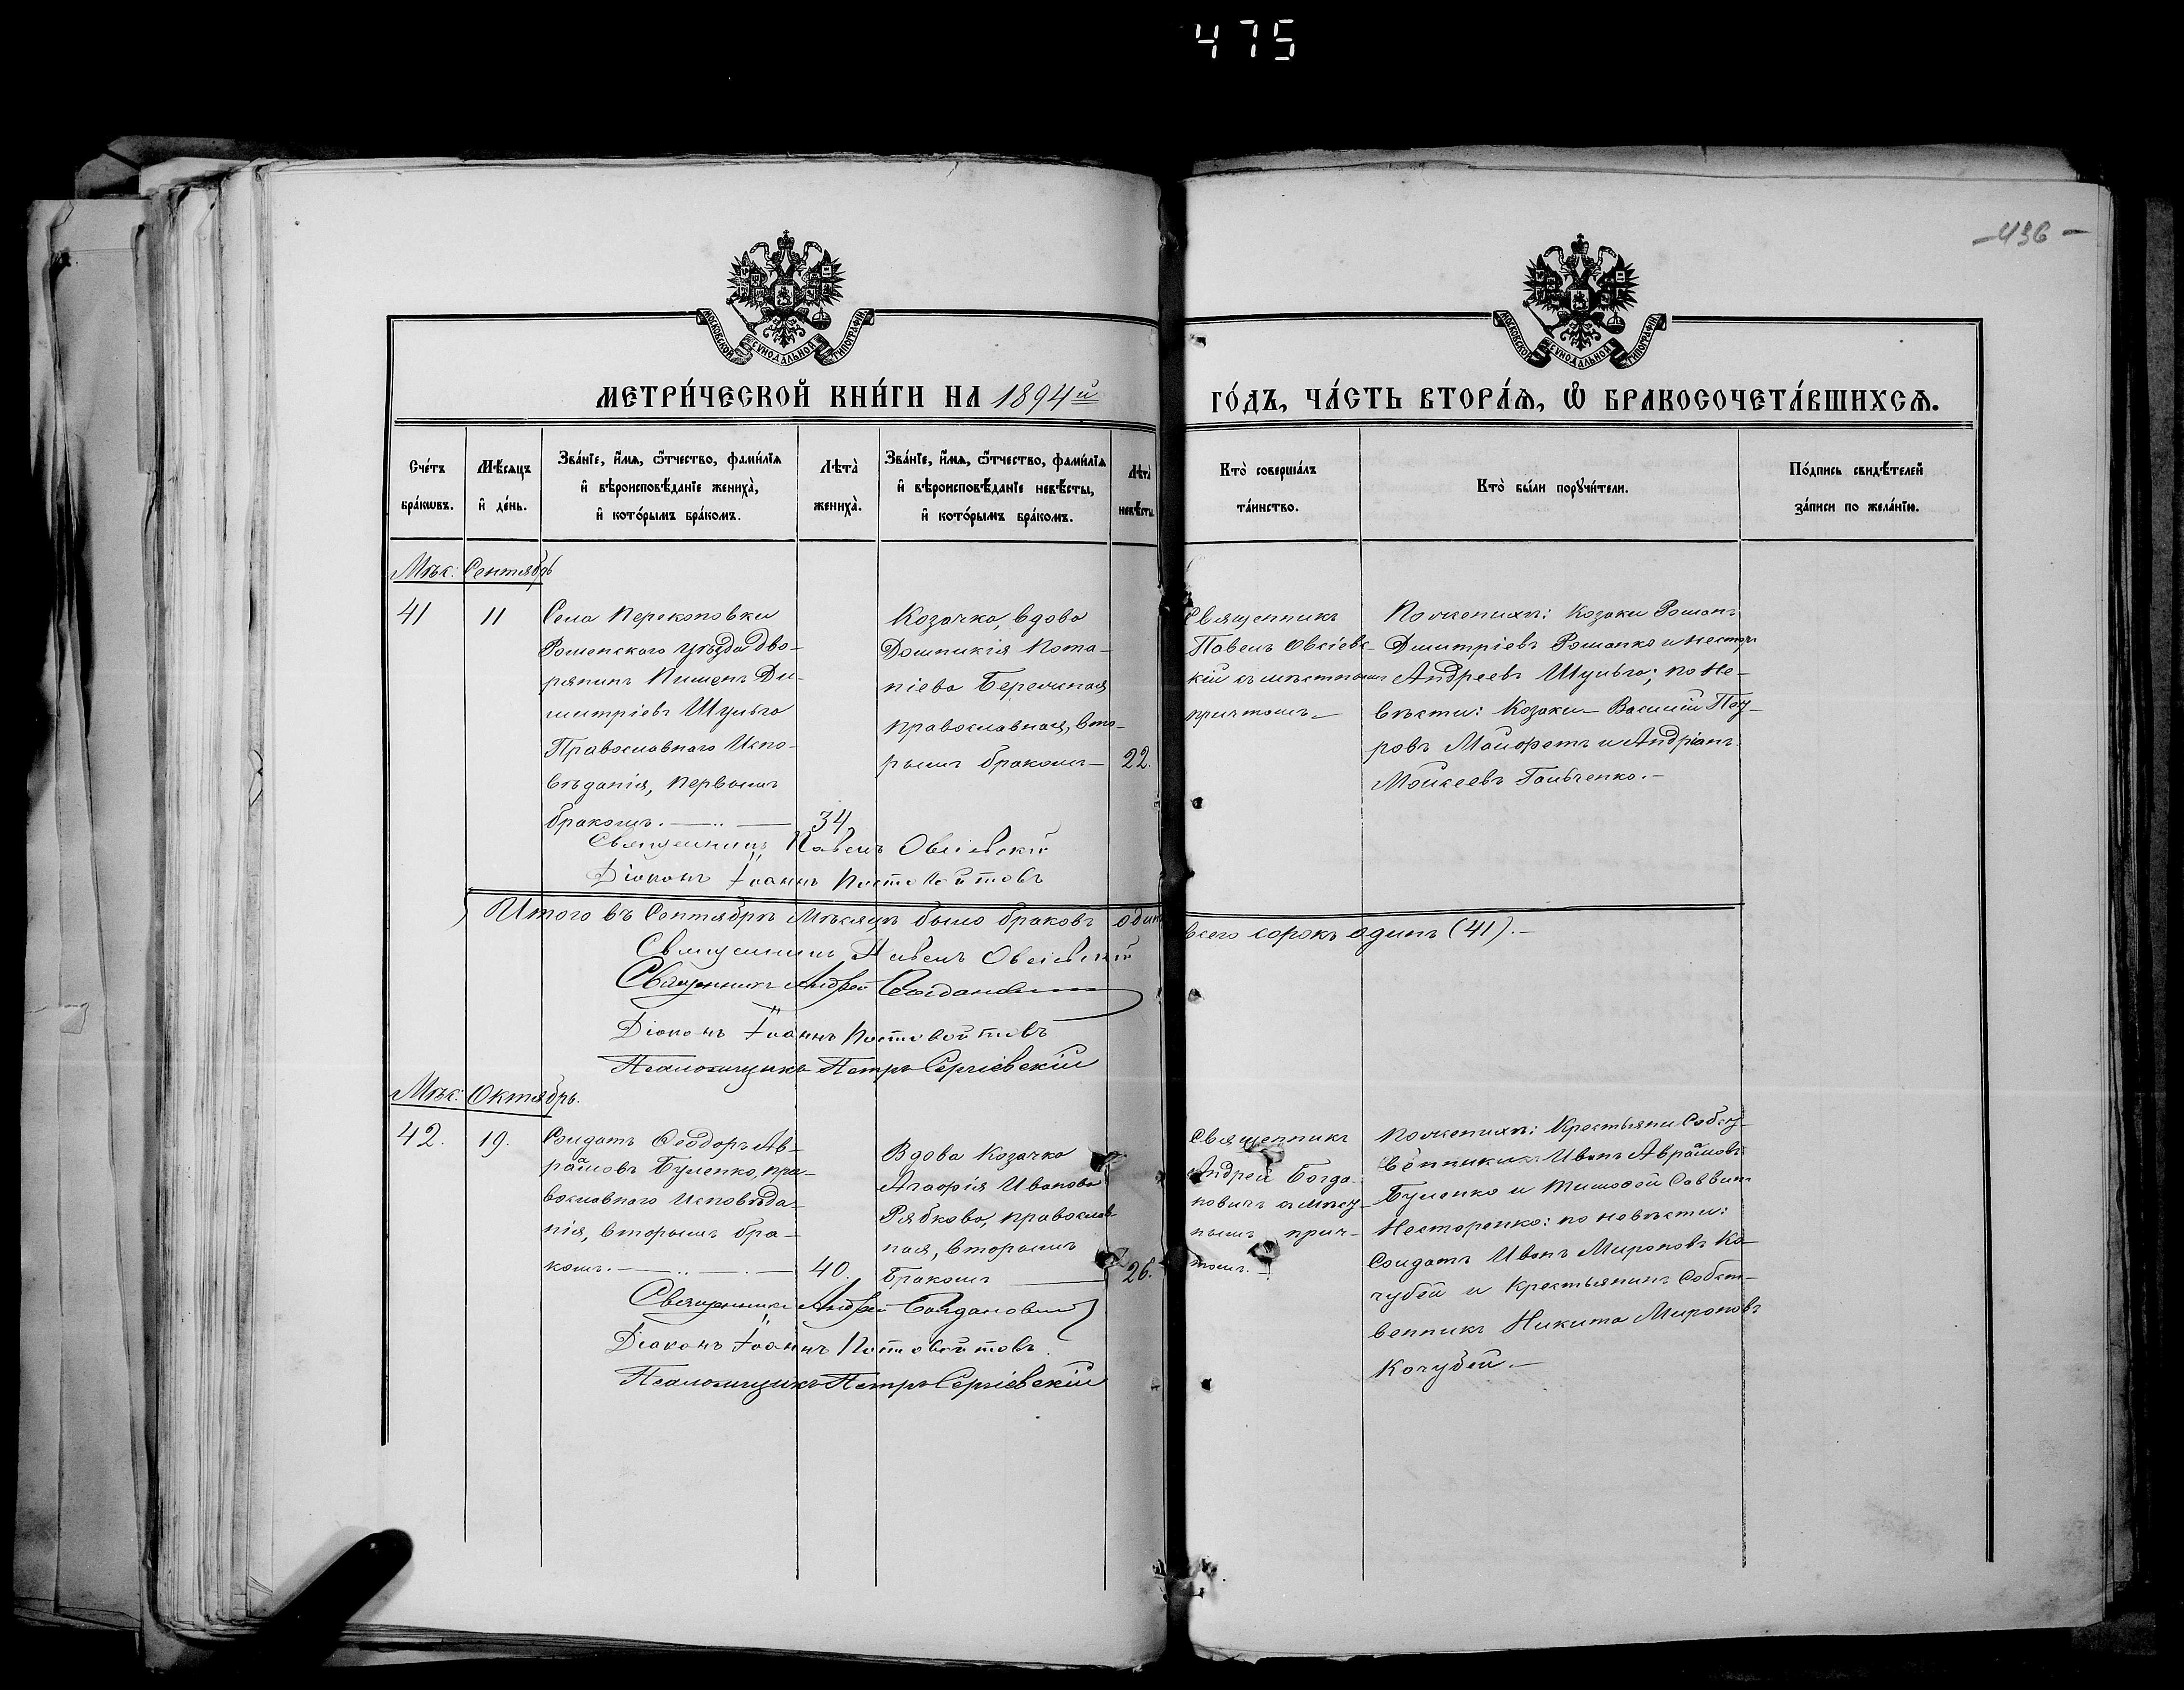 475
-436-
МОСКОВСКОЙ СУНОДАЛЬНОЙ ТИПОГРАФІИ
МОСКОВСКОЙ СУНОДАЛЬНОЙ ТИПОГРАФІИ
МЕТРИ́ЧЕСКОЙ КНИ́ГИ НА 1894й
ГО́ДЪ, ЧА́СТЬ ВТОРА́Ѧ, Ѽ БРАКОСОЧЕТА́ВШИХСѦ.
Сче́тъ бра́кѡвъ.
Мѣ́сяцъ и҆ де́нь.
Зва́нїе, и҆́мѧ, ѻ҆́тчество, фами́лїѧ
и҆ вѣроисповѣ́данїе жениха̀,
и҆ кото́рымъ бра́комъ.
Лѣта̀
жениха̀.
Зва́нїе, и҆́мѧ, ѻ҆́тчество, фами́лїѧ
и҆ вѣроисповѣ́данїе невѣ́сты,
и҆ кото́рымъ бра́комъ.
Лѣта̀
невѣ́сты.
Кто̀ соверша́лъ
та́инство.
Кто̀ бы́ли порꙋчи́тели.
По́дпись свидѣ́телей
за́писи по жела́нїю.
Мѣс: Сентябрь
41
11
Села Перекоповки
Роменского уѣзда дво-
рянинъ Пимен Ди-
митріевъ Шульга
Православнаго Испо-
вѣданія, первымъ
бракомъ. —..—
34
Козачка, вдова
Домникія Пота-
піева Бережная
православная, вто-
рымъ бракомъ—
22.
Священникъ
Павелъ Овсіевс-
кій съ мѣстнымъ
причтомъ—
По женихѣ: Козаки Романъ
Димитріевъ Романко и Несторъ
Андреевъ Шульга; по не-
вѣсти: Козаки— Василій
ровъ и Андріанъ
Моисеевъ Гальченко.—
Священникъ Павелъ Овсіевскій
Діаконъ Іоаннъ Постовойтовъ
Итого въ Сентябрѣ Мѣсяцѣ было браковъ один
всего сорокъ одинъ (41).—
Священникъ Павелъ Овсіевскій
Священникъ Андрей Богданович
Діаконъ Іоаннъ Постовойтовъ
Псаломщикъ Петръ Сергіевскій
Мѣс: Октябрь.
42.
19.
Солдатъ Феодоръ Ав-
рамовъ Буленко, пра-
вославнаго исповѣда-
нія, вторымъ бра-
комъ.—..—.—
40.
Вдова Козачка
Агафія Иванова
Рябкова, православ-
ная, вторымъ
бракомъ —
26.
Священникъ
Андрей Богда-
новичъ с мѣст-
нымъ прич-
томъ.—
По женихѣ: Крестьяни Собст-
венники Иванъ Аврамовъ
Буленко и Тимофей Саввинъ
Несторенко: по невѣсти:
Солдатъ Иванъ Мироновъ Ко-
чубей и Крестьянинъ Собст-
венникъ Никита Мироновъ
Кочубей.—
Священникъ Андрей Богданович
Діаконъ Іоаннъ Постовойтовъ.
Псаломщикъ Петръ Сергіевскій